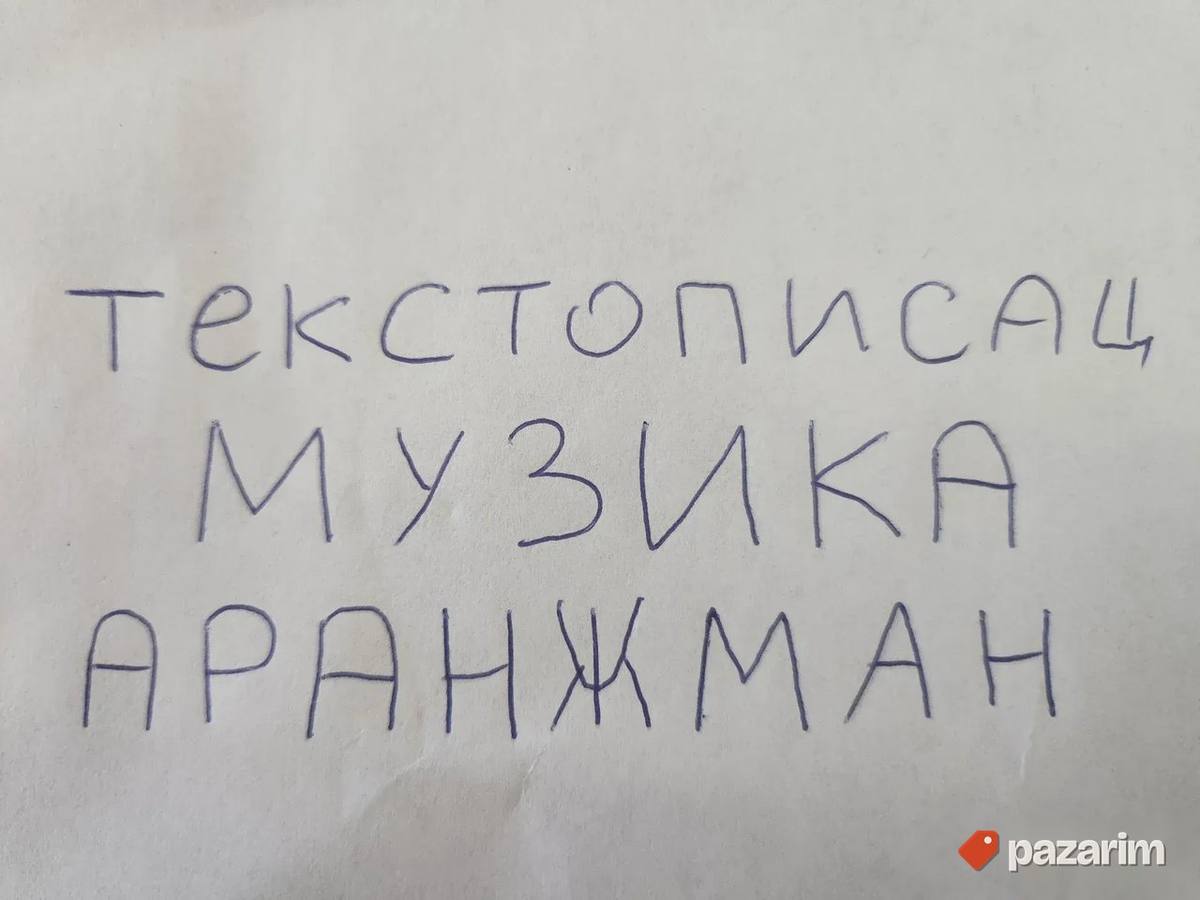 текстописац
МУЗИКА
АРАНЖМАН
pazarim